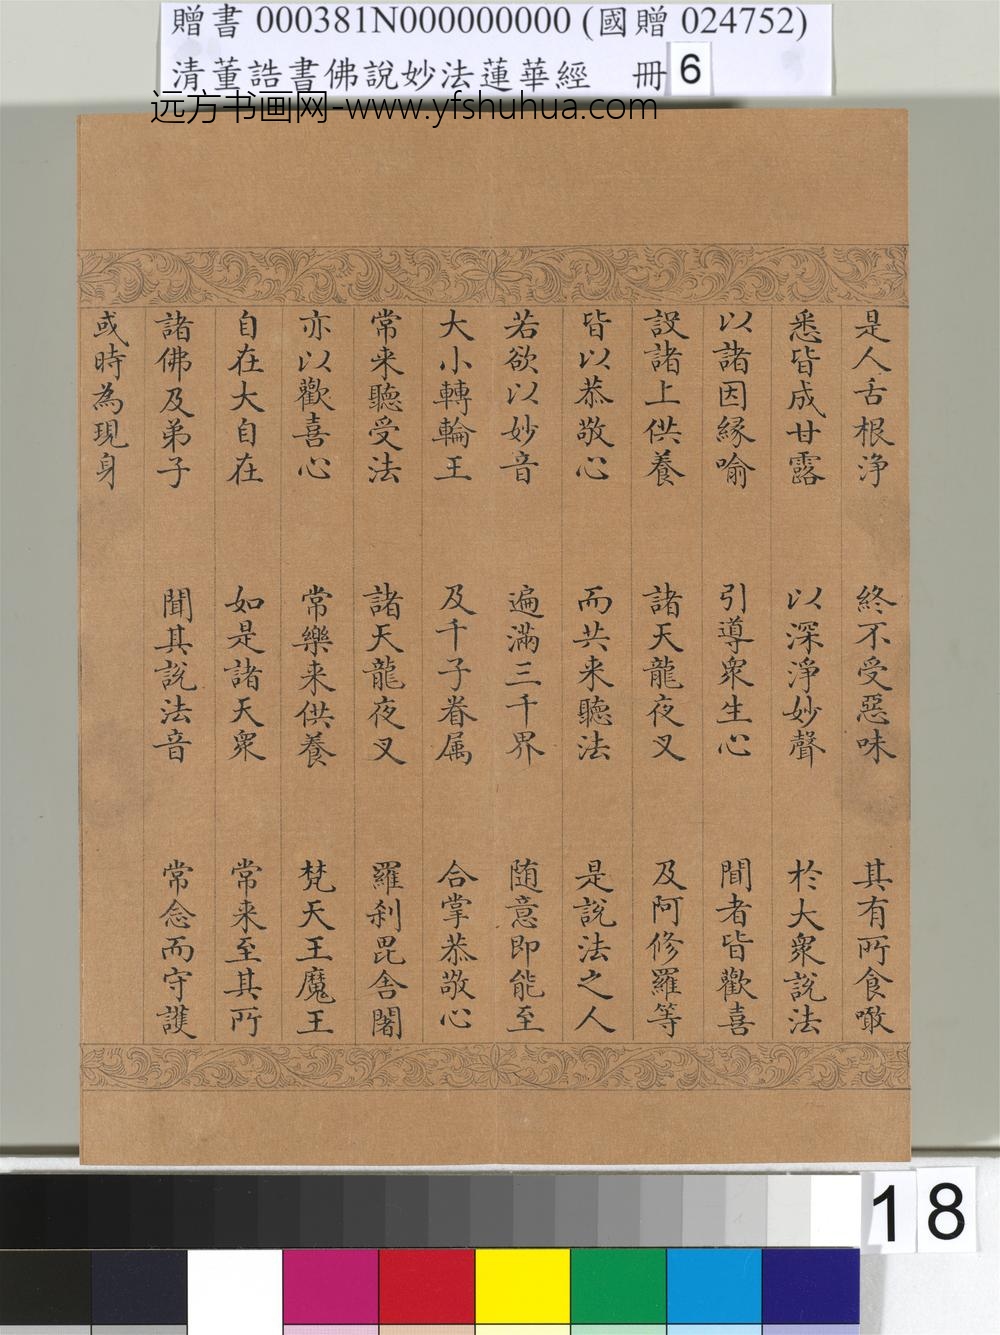 贈書 000381N000000000 (國贈 024752)
清董誥書佛說妙法蓮華經 冊 6
远方书画网-www.yfshuhua.com
是人舌根淨 終不受惡味 其有所食噉
悉皆成甘露 以深淨妙聲 於大衆說法
以諸因緣喻 引導衆生心 聞者皆歡喜
設諸上供養 諸天龍夜叉 及阿修羅等
皆以恭敬心 而共来聽法 是說法之人
若欲以妙音 遍滿三千界 随意即能至
大小轉輪王 及千子眷属 合掌恭敬心
常来聽受法 諸天龍夜叉 羅刹毘舍闍
亦以歡喜心 常樂来供養 梵天王魔王
自在大自在 如是諸天衆 常来至其所
諸佛及弟子 聞其說法音 常念而守護
或時為現身
18